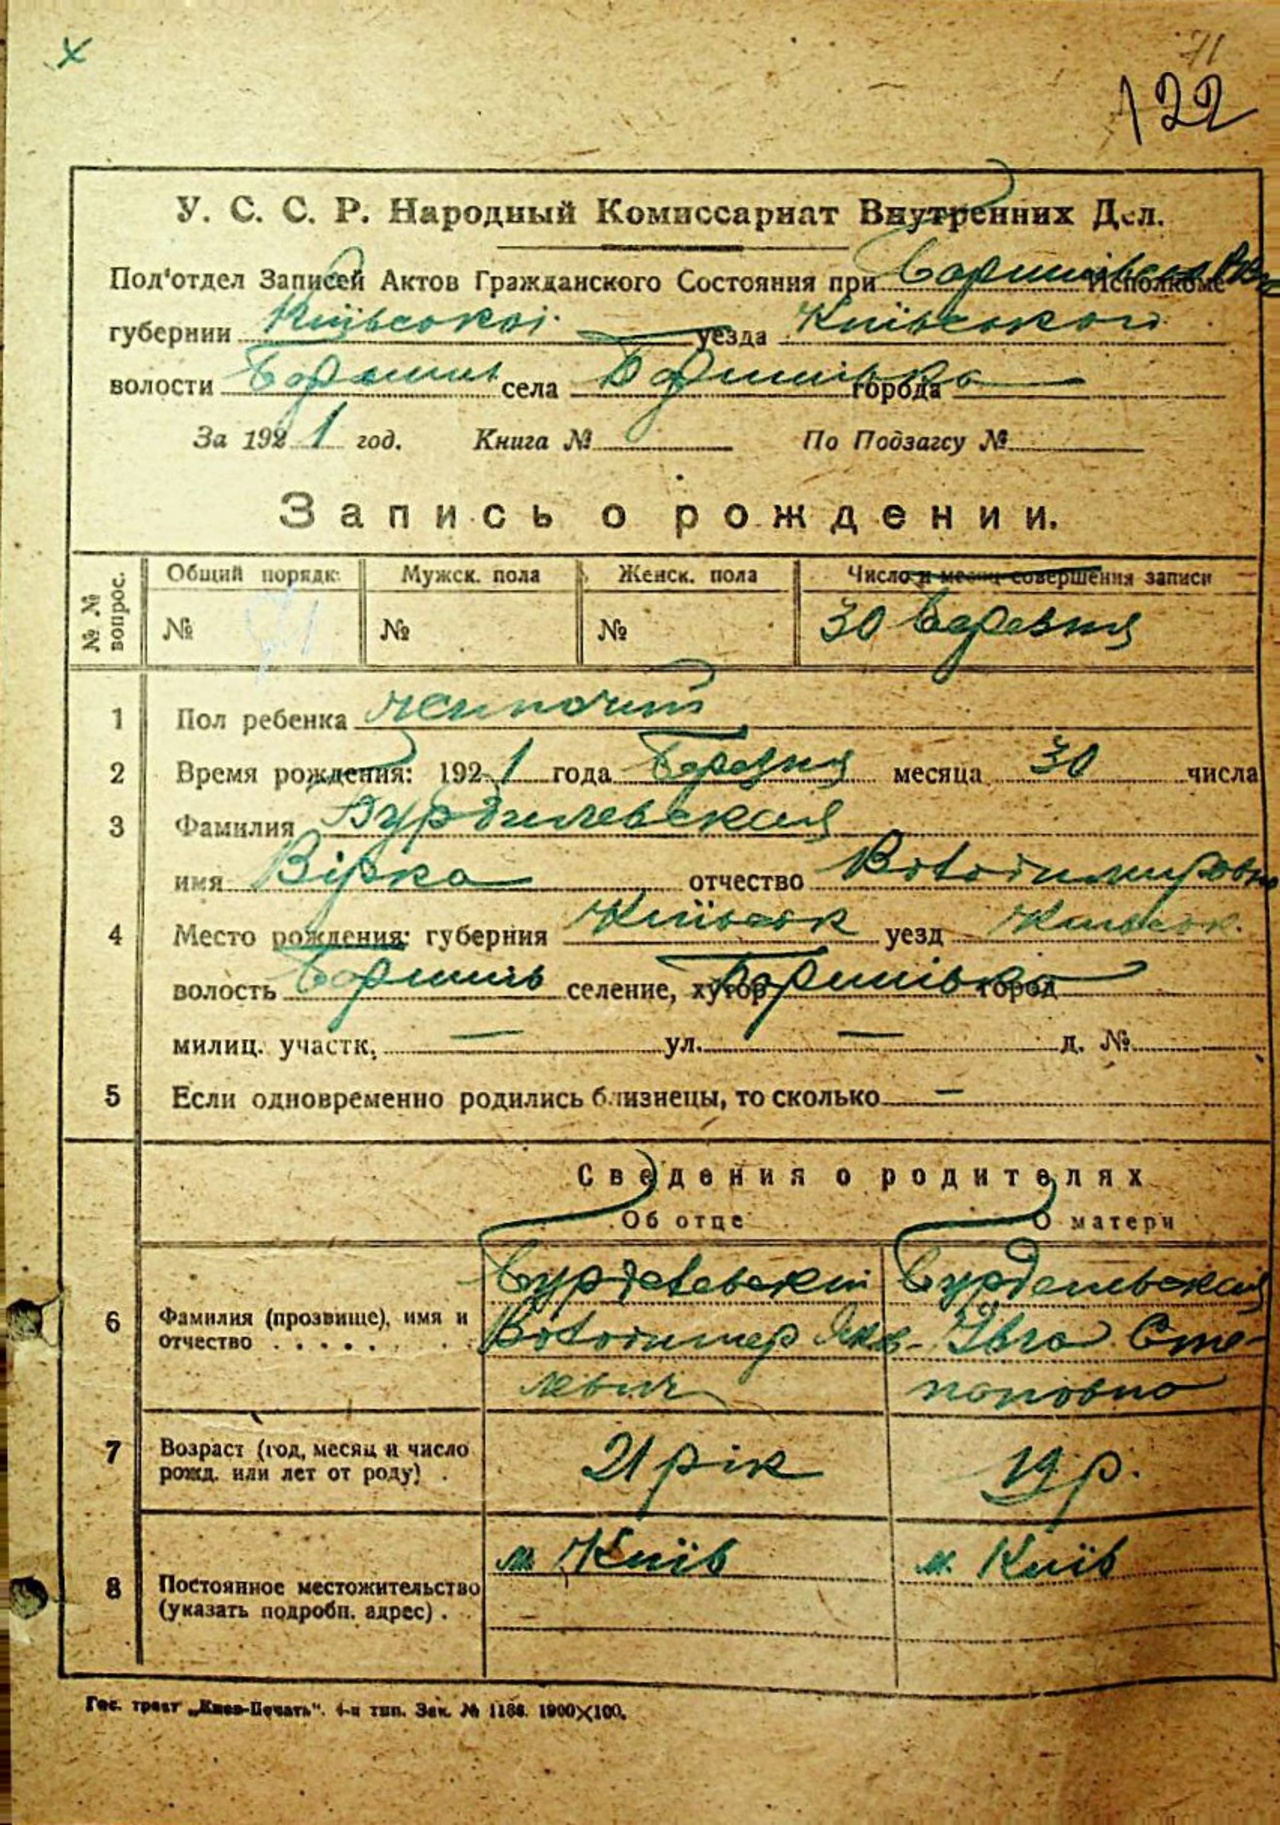 71
122
У. С. С. Р. Народный Комиссариат Внутренних Дел.
Под'отдел Записей Актов Гражданского Состояния при Исполкоме
губернии Київської уезда Київського
волости села Борщагівка города
За 1921 год. Книга № По Подзагсу №
Запись о рождении.
№ № вопрос. Общий порядк. Мужск. пола Женск. пола Число и месяц совершения записи
№ № № 30 Березня
1 Пол ребенка жіночий
2 Время рождения: 1921 года Березня месяца 30 числа
3 Фамилия
имя Вірка отчество Володимировна
4 Место рождения: губерния Київськ уезд Київськ.
волость селение, хутор город
милиц. участк. — ул. — д. №
5 Если одновременно родились близнецы, то сколько —
Сведения о родителях
Об отце О матери
6 Фамилия (прозвище), имя и отчество . . . . . .
Володимер Яков- Степановна
левич
7 Возраст (год, месяц и число рожд. или лет от роду) . 21 рік 19 р.
8 Постоянное местожительство (указать подробн. адрес) . м. Київ м. Київ
Гос. трест „Киев-Печать“. 4-я тип. Зак. № 1188. 1900×100.